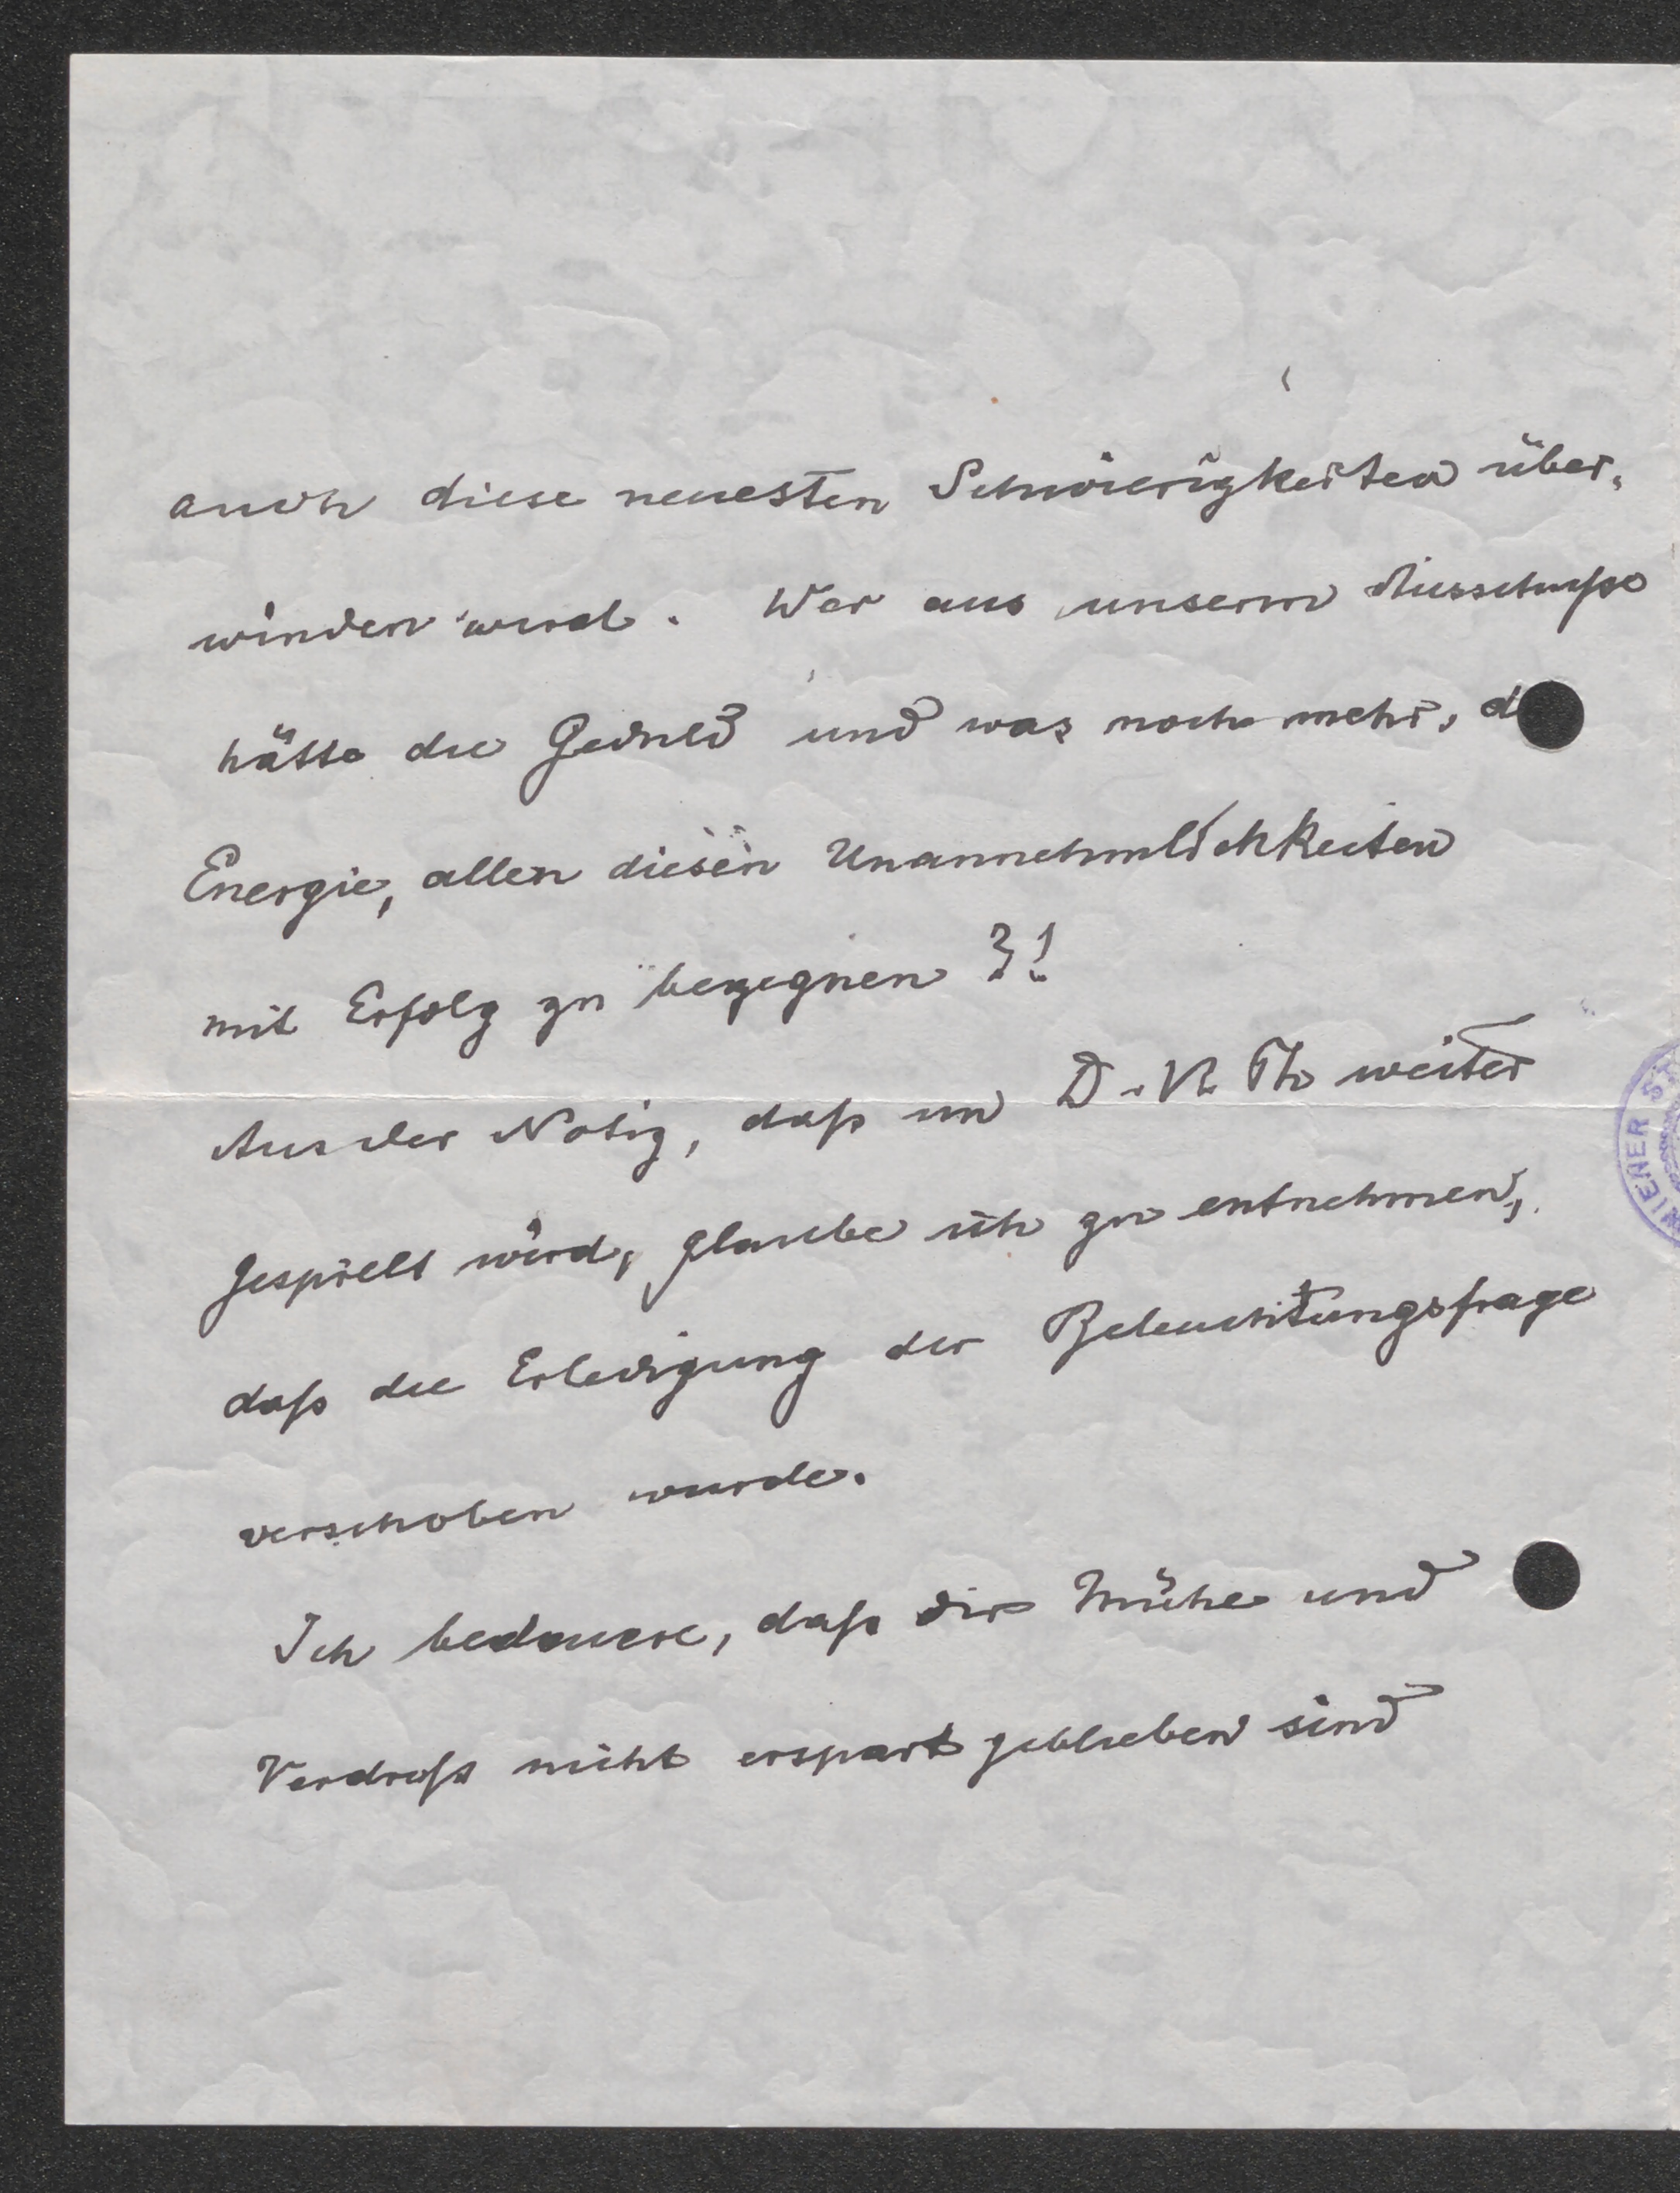 auch diese neuesten Schwierigkeiten über-
winden wird. Wer aus unserm Ausschuße
hätte die Geduld und was noch mehr, d
Energie, allen diesen Unannehmlichkeiten
mit Erfolg zu begegnen ?!
Aus der Notiz, daß im D. V. Th weiter
gespielt wird, glaube ich zu entnehmen,
daß die Erledigung der Beleuchtungsfrage
verschoben wurde.
Ich bedauere, daß dir Mühe und
Verdruß nicht erspart geblieben sind
WIENER ST